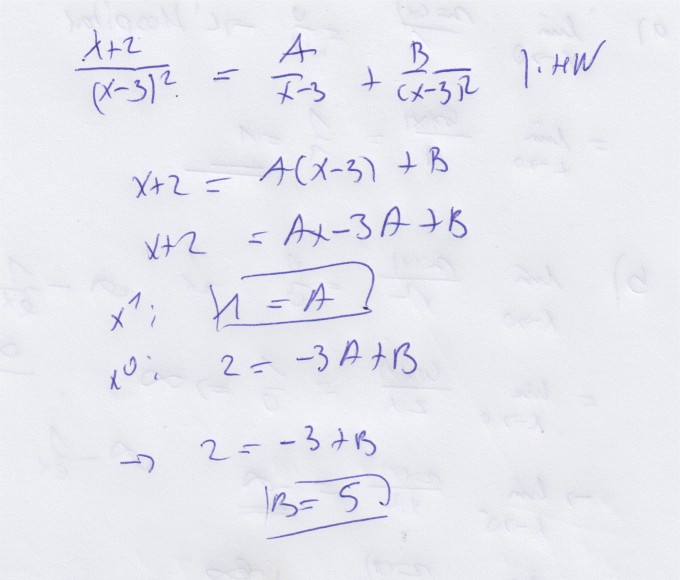 x+2/(x-3)² = A/x-3 + B/(x-3)² | · HN
x+2 = A(x-3) + B
x+2 = Ax-3A+B
x¹: 1 = A
x⁰: 2 = -3A+B
→ 2 = -3+B
B = 5